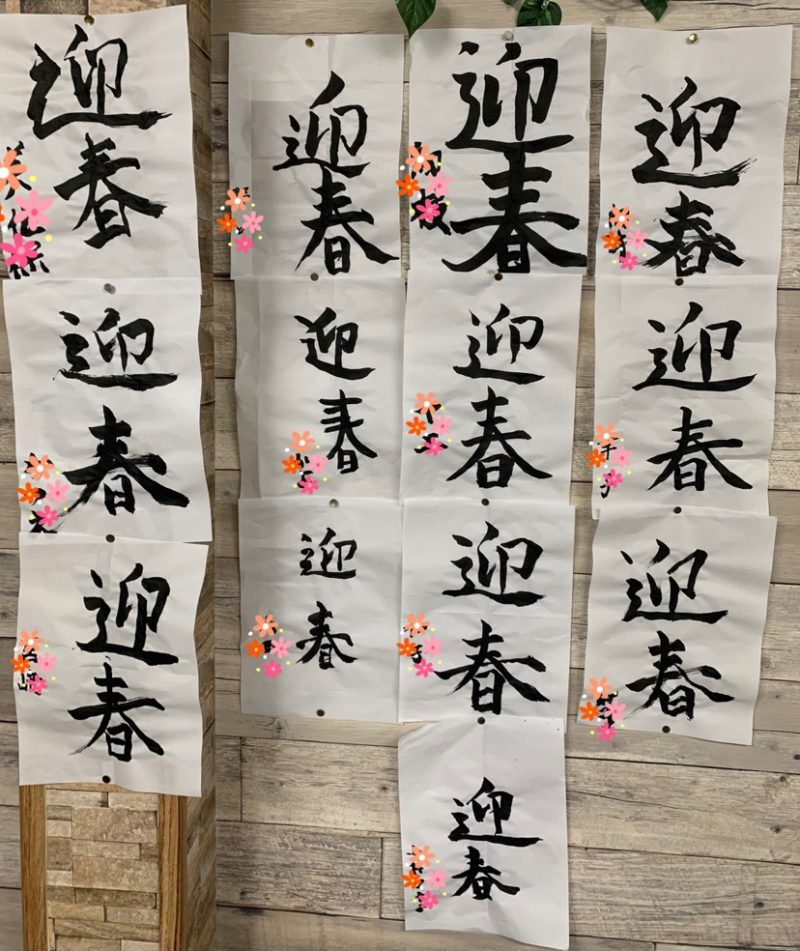 迎春
迎春
迎春
迎春
迎春
迎春
迎春
迎春
迎春
迎春
迎春
迎春
迎春